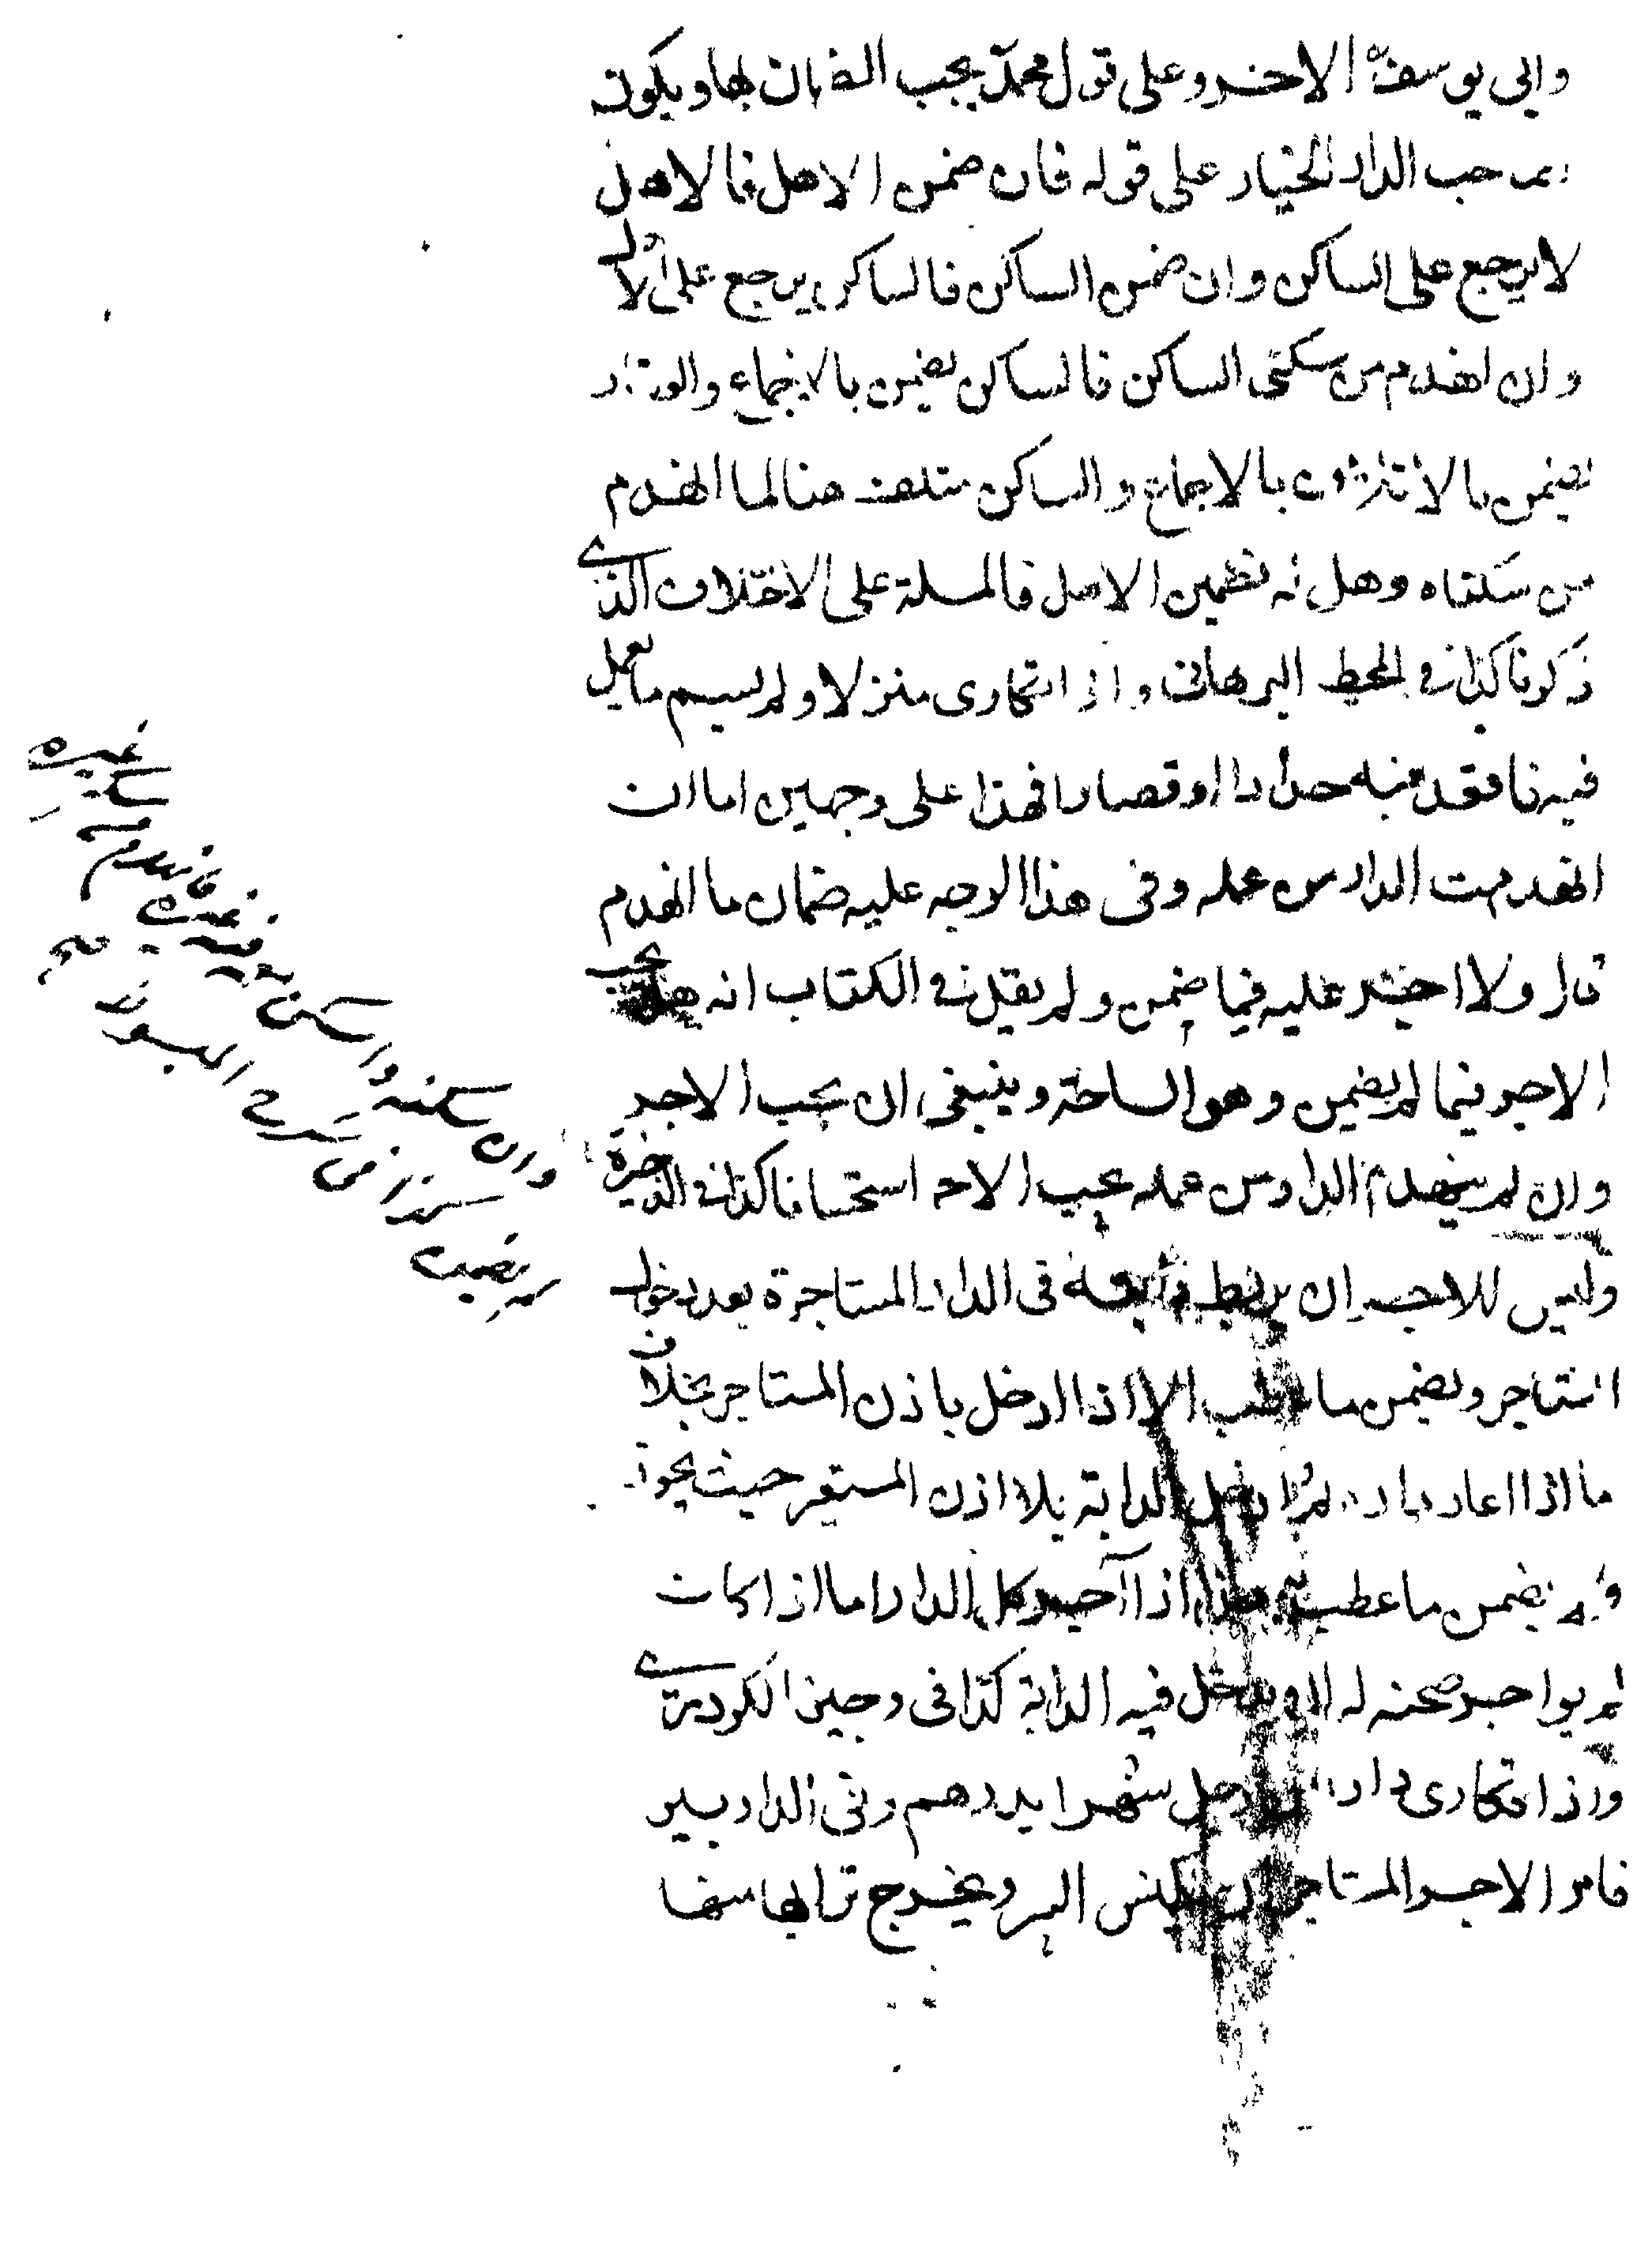 وابي يوسف الاخر وعلى قول محمد يجب الضمان بها ويكون
لصاحب الدار الخيار على قوله فان ضمن الاصل فالاصل
لا يرجع على الساكن وان ضمن الساكن فالساكن يرجع على الاول
وان انهدم من سكنى الساكن فالساكن يضمن بالاجماع
يضمن بالاجماع والساكن متلف هنا لما انهدم
من سكناه وهل له تضمين الاصل فالمسلة على الاختلاف الذي
ذكرنا كذا في المحيط البرهاني واذا تكارى منزلا ولم يسم ما يعمل
فيه فاقعد فيه حدادا او قصارا فهذا على وجهين اما ان
انهدمت الدار من عمله وفي هذا الوجه عليه ضمان ما انهدم
قال ولا اجر عليه فيما ضمن ولم يقل في الكتاب انه هل يجب
الاجر فيما لم يضمن وهو الساحة وينبغي ان يجب الاجر
وان لم ينهدم الدار من عمله يجب الاجر استحسانا كذا في الذخيرة
وليس للاجر ان يربط دابته في الدار المستاجرة بعد دخول
المستاجر ويضمن ما عطب الا اذا ادخل باذن المستاجر بخلاف
ما اذا اعار داره ثم ادخل الدابة بلا اذن المستعير حيث يجوز
ولا يضمن ما عطب به هذا اذا آجر كل الدار اما اذا كان
لم يواجر صحنه له ان يدخل فيه الدابة كذا في وجيز الكردري
واذا تكارى دارا من رجل شهرا بدرهم وفي الدار بير
فامر الاجر المستاجر ان يكنس البير ويخرج ترابها منها